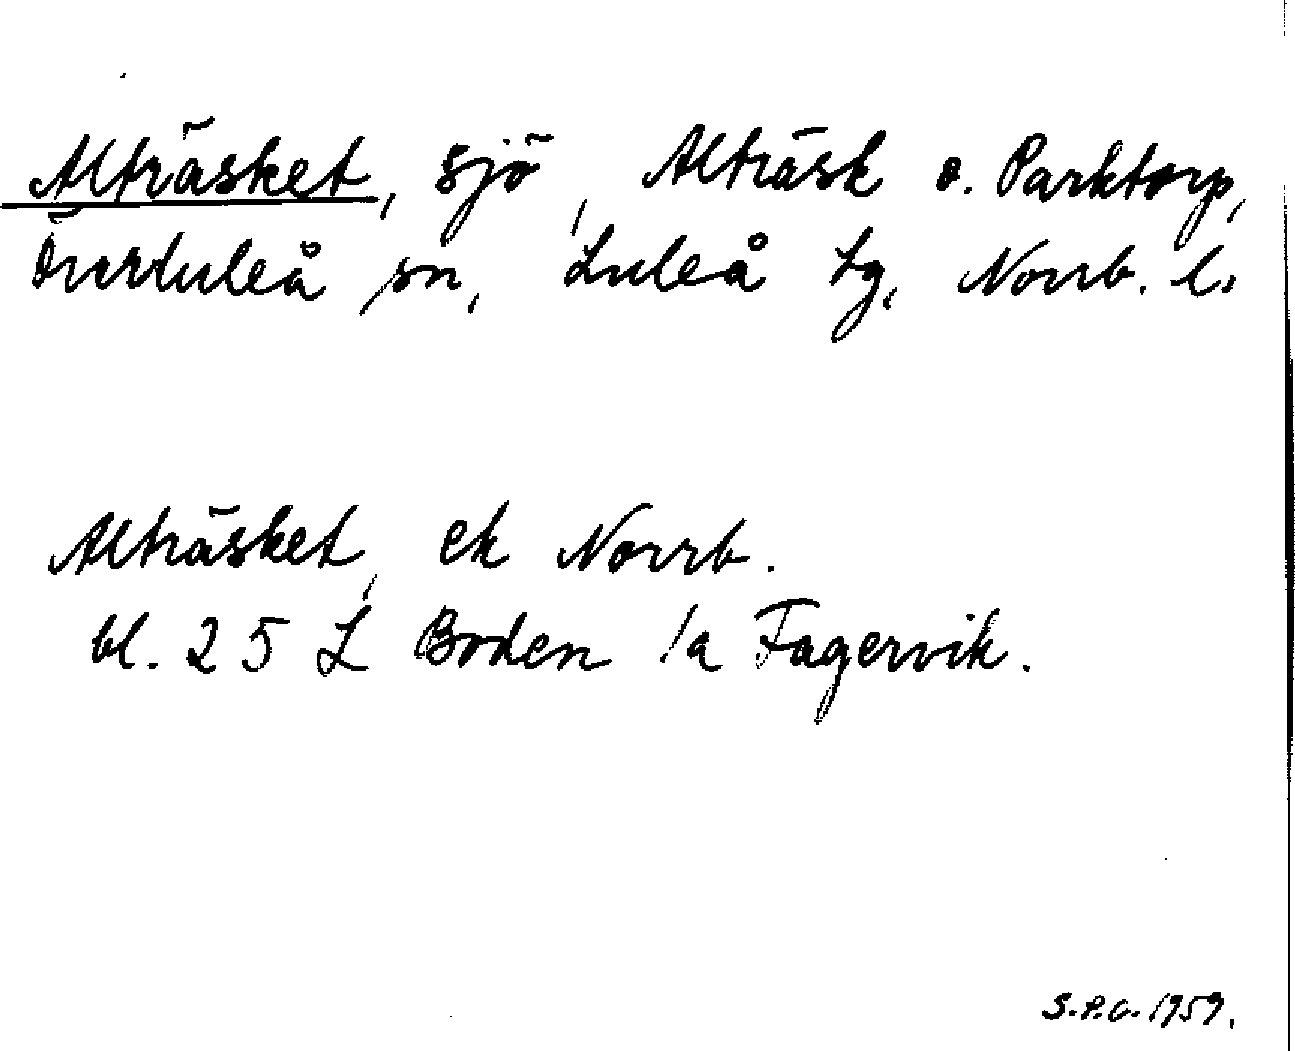 Alträsket, sjö, Alträsk o. Parktorp,
Överluleå sn, Luleå tg, Norrb. l.
Alträsket, ek Norrb.
bl. 25 L Boden /a Fagervik.
S.P.G. 1959.